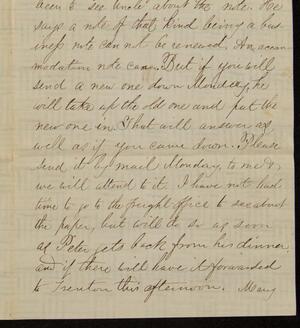 been to see Uncle about the note. He
says a note of that kind being a bus-
iness note can not be renewed. An accom-
modation note can. But if you will
send a new one down Monday, he
will take up the old one and put the
new one in. That will answer as
well as if you came down. Please
send it by mail Monday, to me &
we will attend to it. I have not had
time to go to the freight office to see about
the paper, but will do so as soon
as Peter gets back from his dinner
and if there will have it forwarded
to Trenton this afternoon. Mary